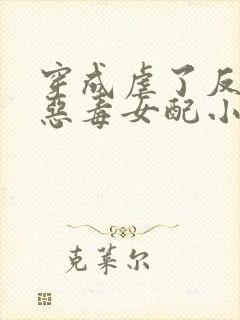 穿成虐了反
恶毒女配小
克莱尔